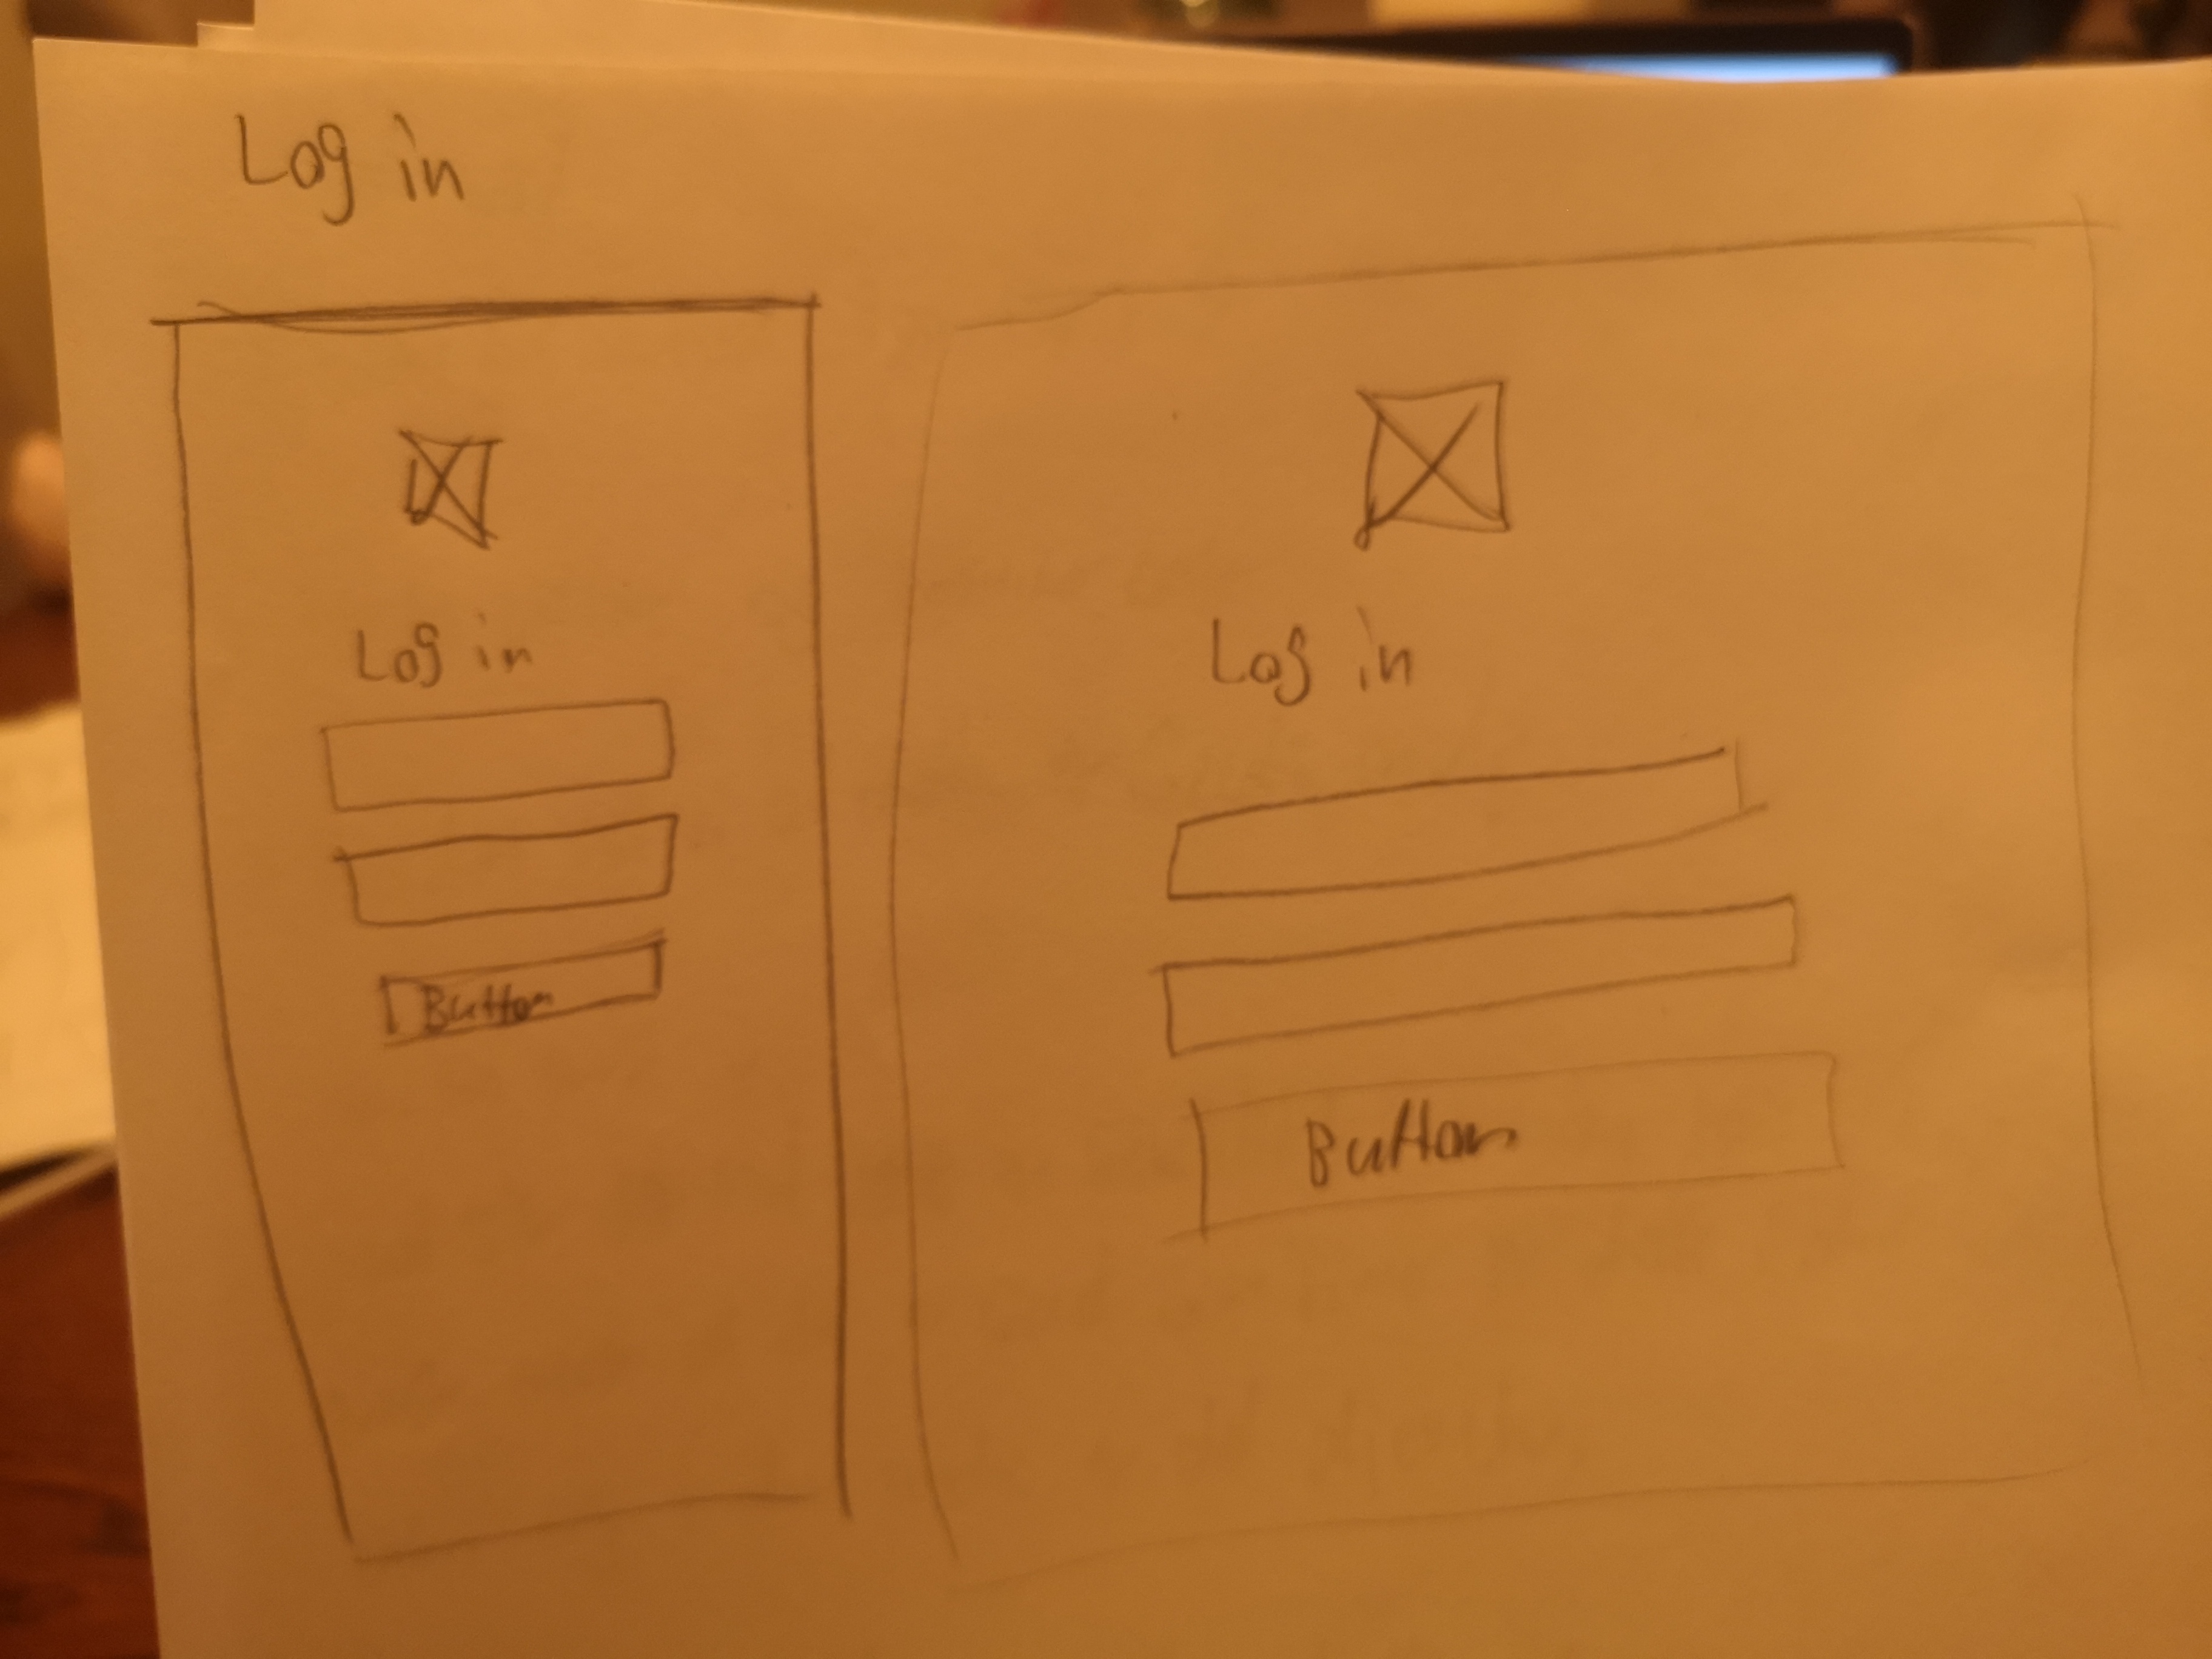 Log in
Log in
Button
Log in
Button